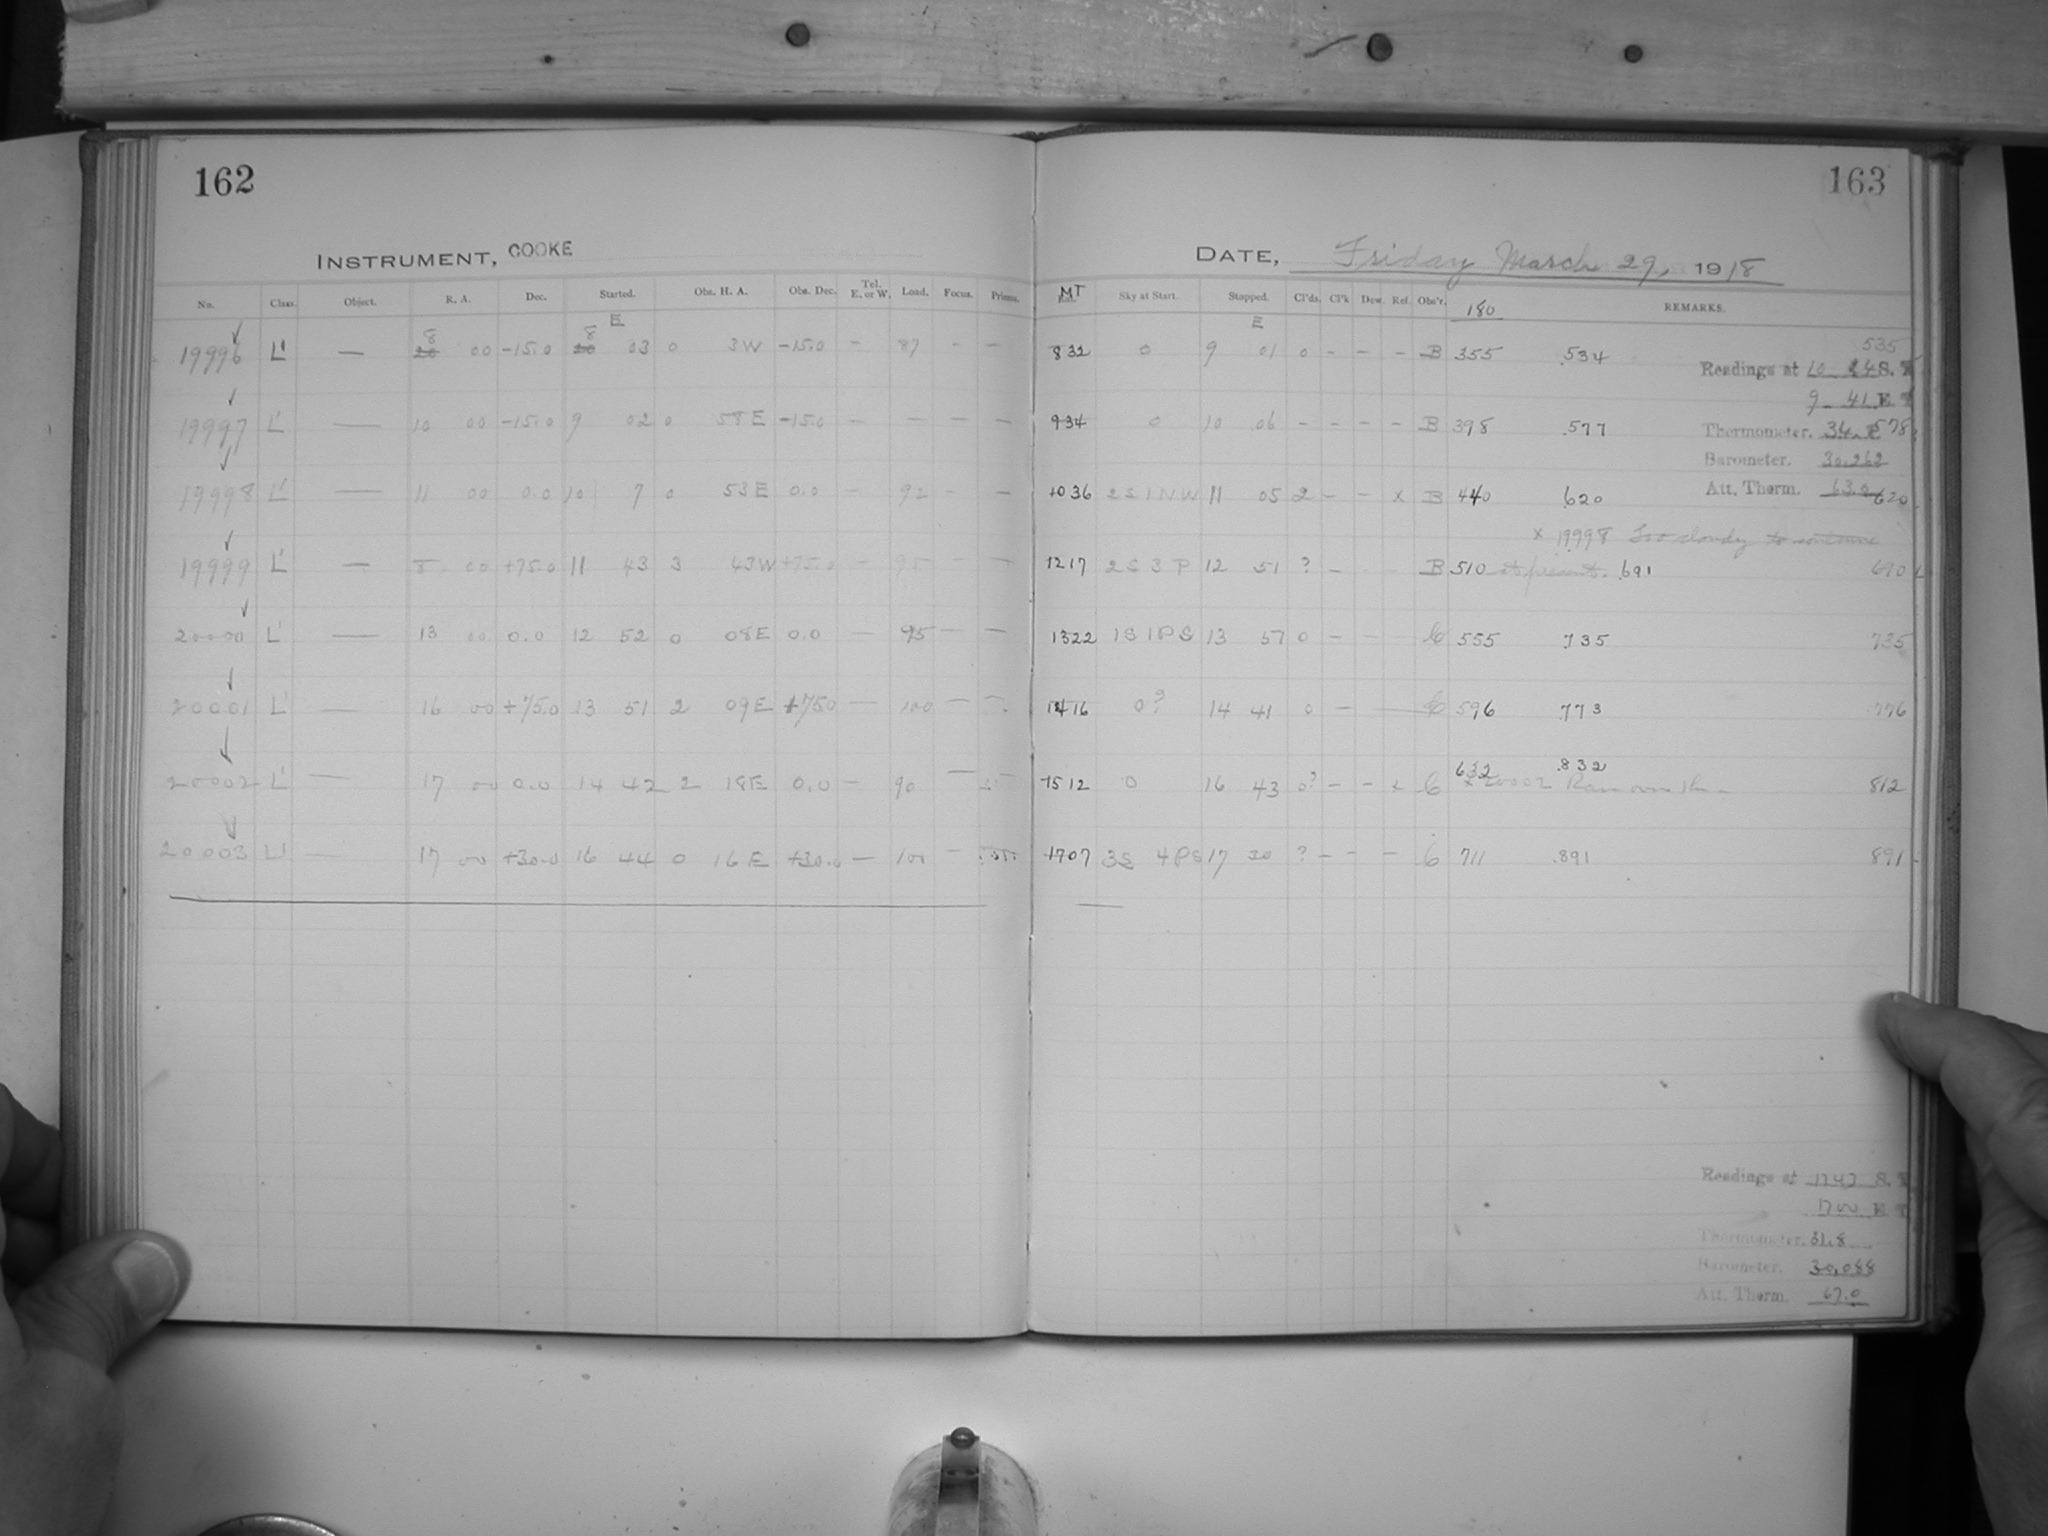 162
163
INSTRUMENT, COOKE
DATE, Friday March 29, 1918
No. Class. Object. R. A. Dec. Started. Obs. H. A. Obs. Dec. Tel. E. or W. Load. Focus. Prisms.
MT Sky at Start. Stopped. Cl'ds. Cl'k Dew. Ref. Obs'r. 180 REMARKS.
E
E
19996 L' — 8 00 -15.0 8 03 0 3W -15.0 - 87 - -
832 0 9 01 0 - - - B 355 .534 535
Readings at 10 24 S. T
9 41 E T
19997 L' — 10 00 -15.0 9 02 0 58E -15.0 — — — —
934 0 10 06 - - - - B 398 .577 578
Thermometer. 34.
Barometer. 30.262
19998 L' — 11 00 0.0 10 7 0 53E 0.0 - 92 - -
1036 2S1NW 11 05 2 - - x B 440 .620 620
Att. Therm. 63.0
x 19998 Too cloudy to continue
19999 L' — 8 00 +75.0 11 43 3 43W +75.0 - 95 - -
1217 2S3P 12 51 ? - B 510 at present. .691 690
20000 L' — 13 00 0.0 12 52 0 08E 0.0 — 95 — —
1322 1S1PS 13 57 0 - - - 555 .735 735
20001 L' — 16 00 +75.0 13 51 2 09E +750 — 100 — -
1416 0? 14 41 0 — 596 .773 776
632 .832
20002 L' — 17 00 0.0 14 42 2 18E 0.0 — 90 —
1512 0 16 43 0? - - x C x 20002 Ran over 812
20003 L' — 17 00 +30.0 16 44 0 16E +30.0 — 100 -
1707 3S 4PS 17 30 ? - - - C 711 .891 891
Readings at 1742 S. T
1700 E T
Thermometer. 31.8
Barometer. 30.088
Att. Therm. 67.0